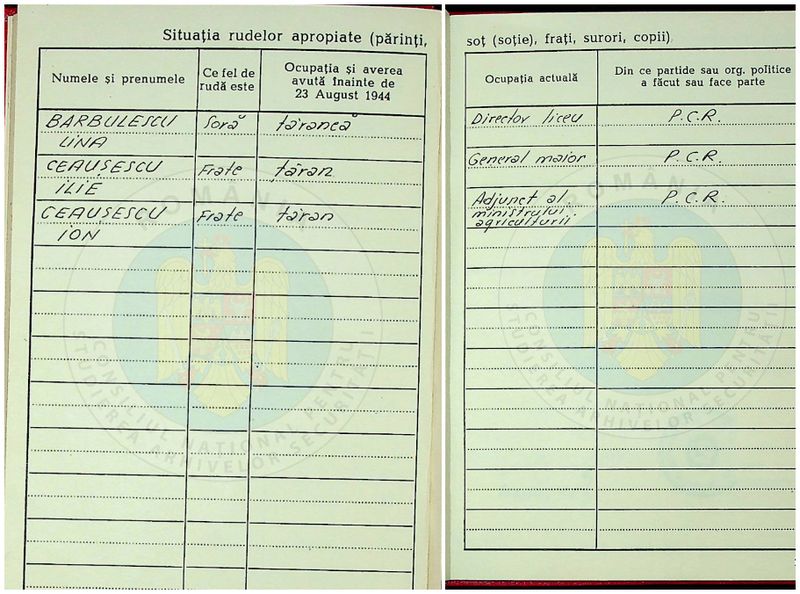 Situația rudelor apropiate (părinți,
Numele și prenumele
Ce fel de
rudă este
Ocupația și averea
avută înainte de
23 August 1944
BĂRBULESCU
LINA
Soră
țărancă
CEAUȘESCU
ILIE
Frate
țăran
CEAUȘESCU
ION
Frate
țăran
ROMÂNIA
CONSILIUL NAȚIONAL PENTRU
STUDIEREA ARHIVELOR SECURITĂȚII
soț (soție), frați, surori, copii)
Ocupația actuală
Din ce partide sau org. politice
a făcut sau face parte
Director liceu
P.C.R.
General maior
P.C.R.
Adjunct al
ministrului
agriculturii
P.C.R.
ROMÂNIA
CONSILIUL NAȚIONAL PENTRU
STUDIEREA ARHIVELOR SECURITĂȚII